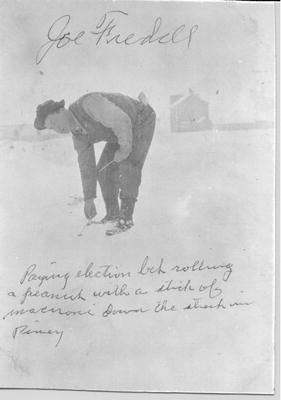 Joe Fredell
Paying election bet rolling
a peanut with a stick of
macroni down the street in
Piney